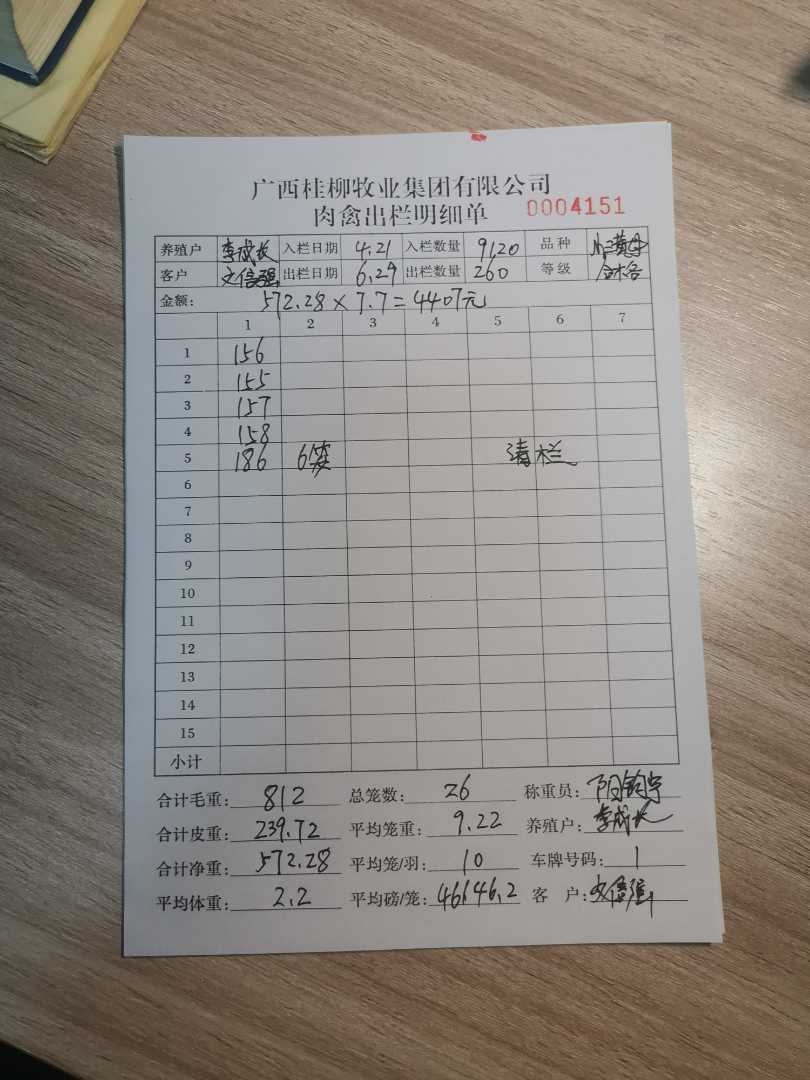 广西桂柳牧业集团有限公司
肉禽出栏明细单 0004151
养殖户 李成长 入栏日期 4.21 入栏数量 9120 品种 小三黄母
客户 文信强 出栏日期 6.29 出栏数量 260 等级 合格
金额: 572.28×7.7=4407元
1 2 3 4 5 6 7
1 156
2 155
3 157
4 158
5 186 6笼 清栏
6
7
8
9
10
11
12
13
14
15
小计
合计毛重: 812 总笼数: 26 称重员: 阳钧宇
合计皮重: 239.72 平均笼重: 9.22 养殖户: 李成长
合计净重: 572.28 平均笼/羽: 10 车牌号码: 1
平均体重: 2.2 平均磅/笼: 46146.2 客 户: 文信强